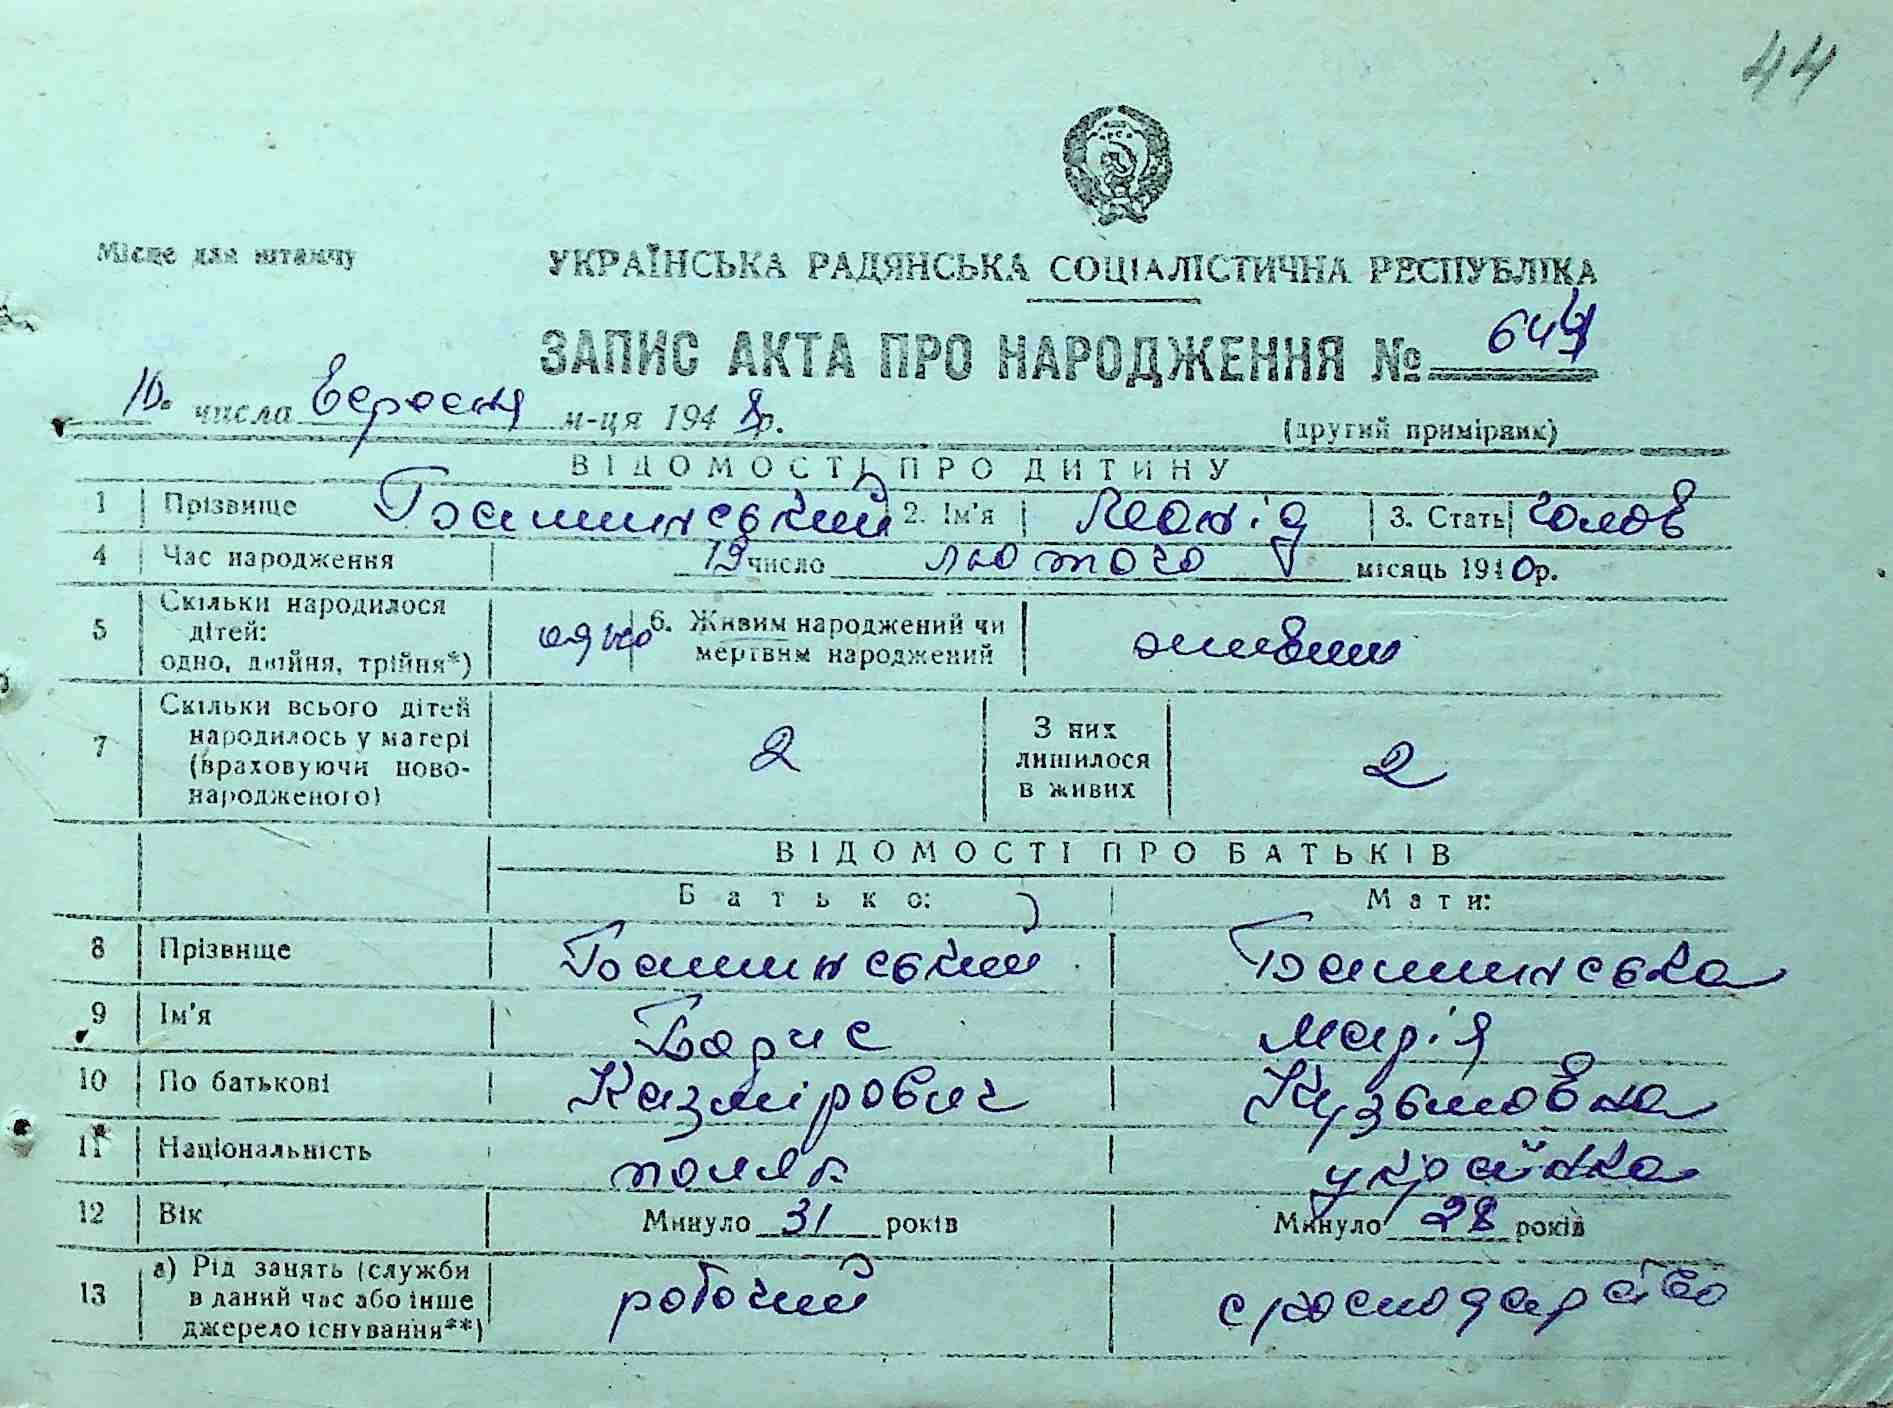 44
Місце для штампу
УКРАЇНСЬКА РАДЯНСЬКА СОЦІАЛІСТИЧНА РЕСПУБЛІКА
ЗАПИС АКТА ПРО НАРОДЖЕННЯ №
10 числа вересня м-ця 194 р.
(другий примірник)
ВІДОМОСТІ ПРО ДИТИНУ
1 Прізвище Башинський 2. Ім'я Леонід 3. Стать чолов
4 Час народження 19 число лютого місяць 1940р.
5 Скільки народилося
дітей:
одно, двійня, трійня*) одно 6. Живим народжений чи
мертвим народжений живим
7 Скільки всього дітей
народилось у матері
(враховуючи ново-
народженого) 2 З них
лишилося
в живих 2
ВІДОМОСТІ ПРО БАТЬКІВ
Батько: Мати:
8 Прізвище Башинський Башинська
9 Ім'я Борис Марія
10 По батькові Казмірович Кузьмовна
11 Національність поляк українка
12 Вік Минуло 31 років Минуло 28 років
13 а) Рід занять (служби
в даний час або інше
джерело існування**) робочий